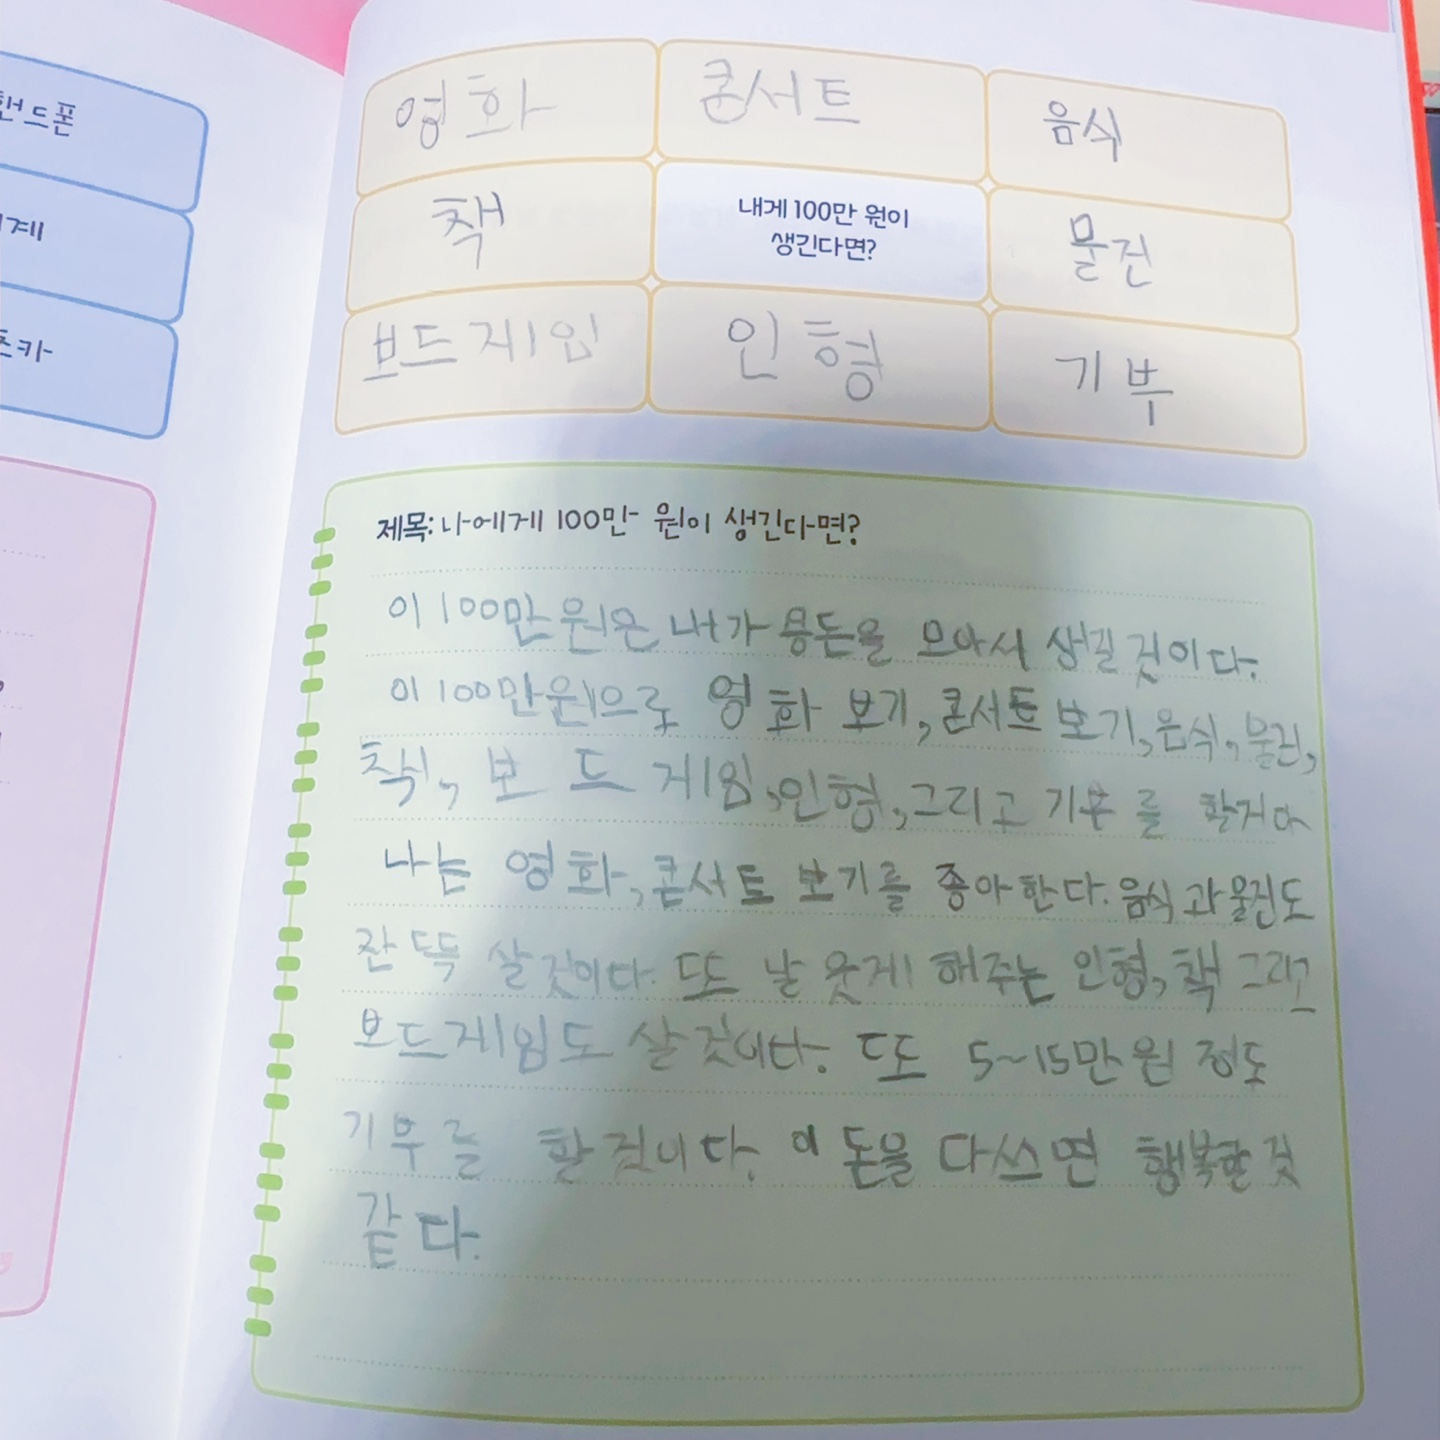 핸드폰
계
영화
콘서트
음식
책
내게 100만 원이
생긴다면?
물건
보드게임
인형
기부
제목: 나에게 100만 원이 생긴다면?
이 100만원은 내가 용돈을 모아서 생길 것이다.
이 100만원으로 영화 보기, 콘서트 보기, 음식, 물건,
책, 보드 게임, 인형, 그리고 기부를 할거야
나는 영화, 콘서트 보기를 좋아한다. 음식과 물건도
잔뜩 살것이다. 또 날 웃게 해주는 인형, 책 그리고
보드게임도 살것이다. 또 5~15만원 정도
기부를 할것이다. 이 돈을 다쓰면 행복할 것
같다.